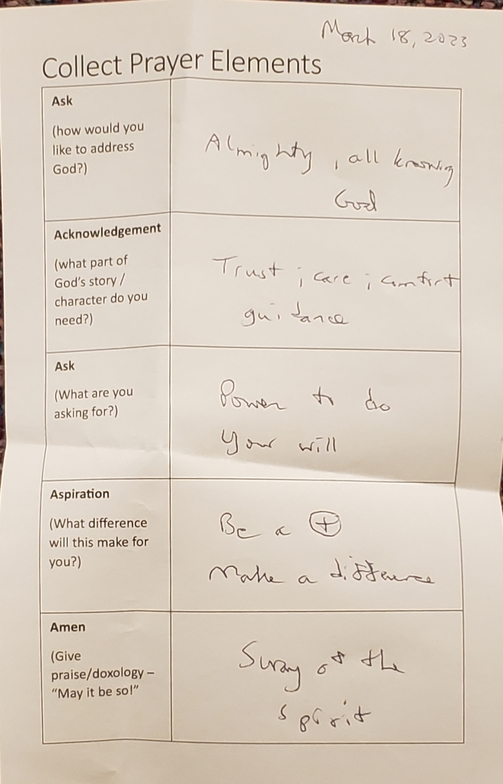 March 18, 2023
Collect Prayer Elements
Ask
(how would you
like to address
God?)
Almighty, all knowing
God
Acknowledgement
(what part of
God's story /
character do you
need?)
Trust ; care ; comfort
guidance
Ask
(What are you
asking for?)
Power to do
your will
Aspiration
(What difference
will this make for
you?)
Be a ⊕
Make a difference
Amen
(Give
praise/doxology –
"May it be so!"
Sway of the
spirit